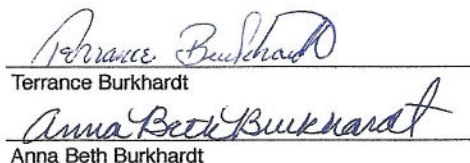 Terrance Burkhardt
Terrance Burkhardt
Anna Beth Burkhardt
Anna Beth Burkhardt